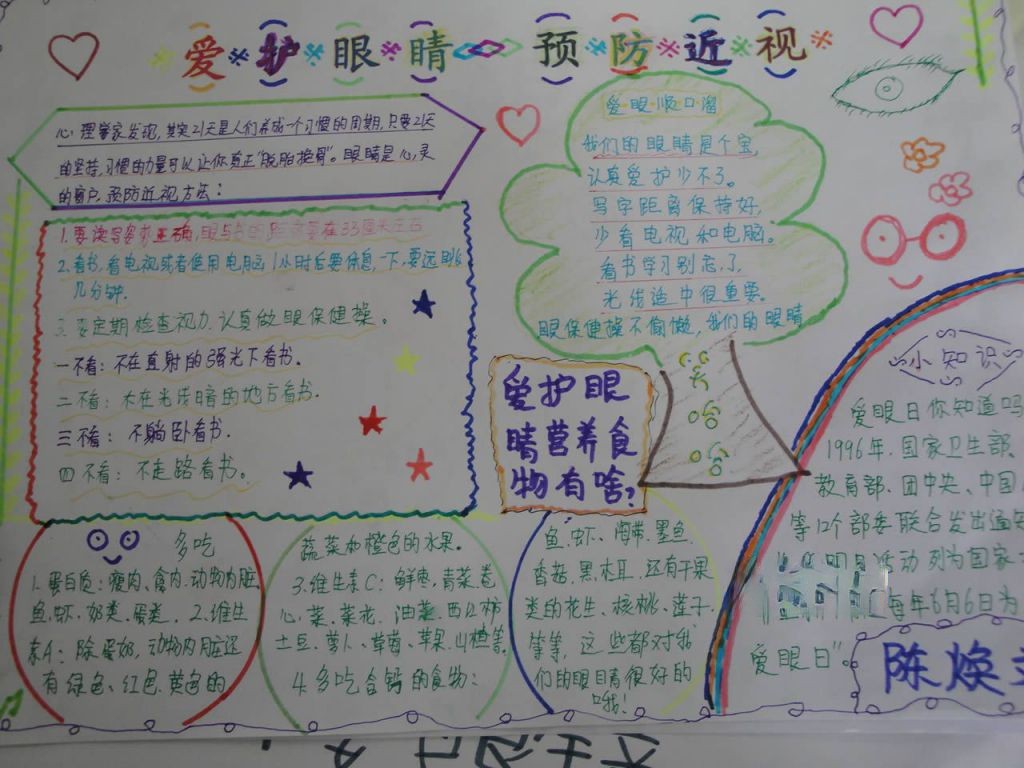 爱护眼睛 预防近视
心理学家发现,其实21天是人们养成一个习惯的周期,只要21天
的坚持,习惯的力量可以让你真正"脱胎换骨"。眼睛是心灵
的窗户,预防近视方法:
1.要读写姿势正确,眼与书的距离要在33厘米左右
2.看书,看电视或者使用电脑1小时后要休息一下,要远眺
几分钟.
3.要定期检查视力,认真做眼保健操。
一不看:不在直射的强光下看书.
二不看:不在光线暗的地方看书.
三不看:不躺卧看书.
四不看:不走路看书。
爱眼顺口溜
我们的眼睛是个宝,
认真爱护少不了。
写字距离保持好,
少看电视和电脑。
看书学习别忘了,
光线适中很重要。
眼保健操不偷懒,我们的眼睛
爱护眼
睛营养食
物有啥?
多吃
1.蛋白质:瘦肉、禽肉、动物内脏
鱼、虾、奶类、蛋类. 2.维生
素A:除蛋奶,动物内脏还
有绿色、红色、黄色的
蔬菜和橙色的水果。
3.维生素C:鲜枣、青菜、卷
心菜、菜花、油菜、西红柿
土豆、萝卜、草莓、苹果、山楂等
4.多吃含钙的食物:
鱼、虾、海带、墨鱼
香菇、黑木耳、还有干果
类的花生、核桃、莲子
等等,这些都对我
们的眼睛很好的
哦!
小知识
爱眼日你知道吗
1996年,国家卫生部、
教育部、团中央、中国
等12个部委联合发出通知
活动列为国家
每年6月6日为
爱眼日"。
陈焕